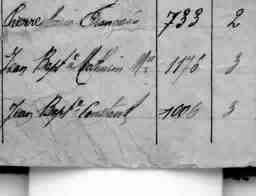 Pierre Louis François 733 2
Jean Bapt.e Mathurin 1176 3
Jean Bapt.e Constant 1006 3